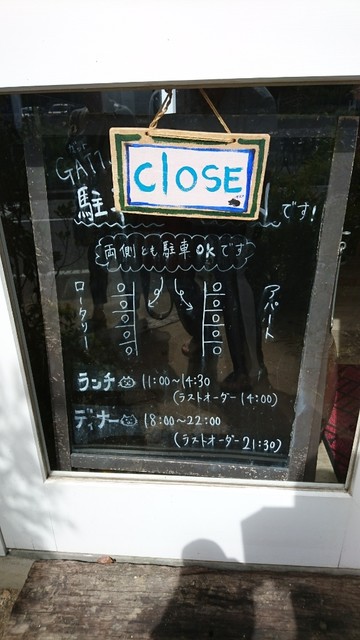 CLOSE
GATT
駐
です!
両側とも駐車OKです
ロータリー
アパート
ランチ 11:00~14:30
(ラストオーダー 14:00)
ディナー 18:00~22:00
(ラストオーダー 21:30)